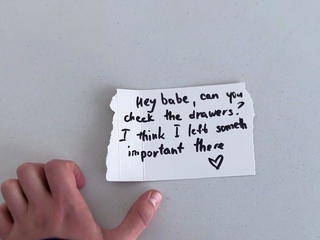 Hey babe, can you
check the drawers?
I think I left someth
important there